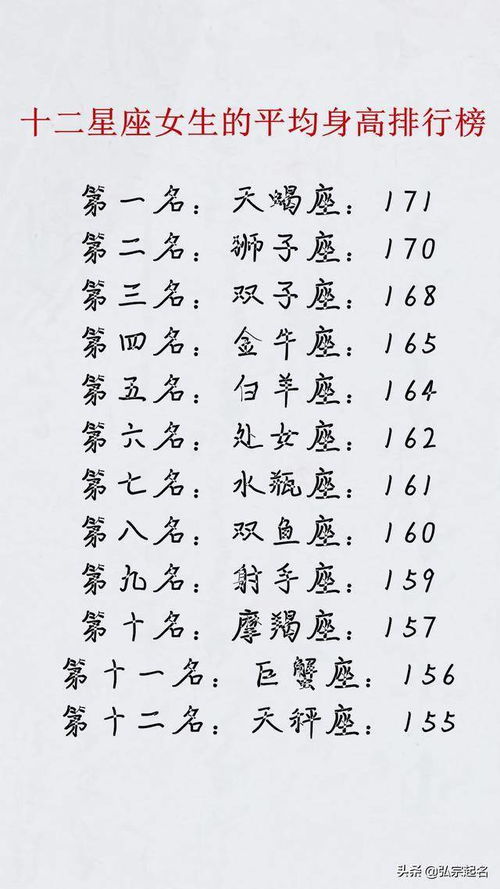 十二星座女生的平均身高排行榜
第一名：天蝎座：171
第二名：狮子座：170
第三名：双子座：168
第四名：金牛座：165
第五名：白羊座：164
第六名：处女座：162
第七名：水瓶座：161
第八名：双鱼座：160
第九名：射手座：159
第十名：摩羯座：157
第十一名：巨蟹座：156
第十二名：天秤座：155
头条 @弘宗起名